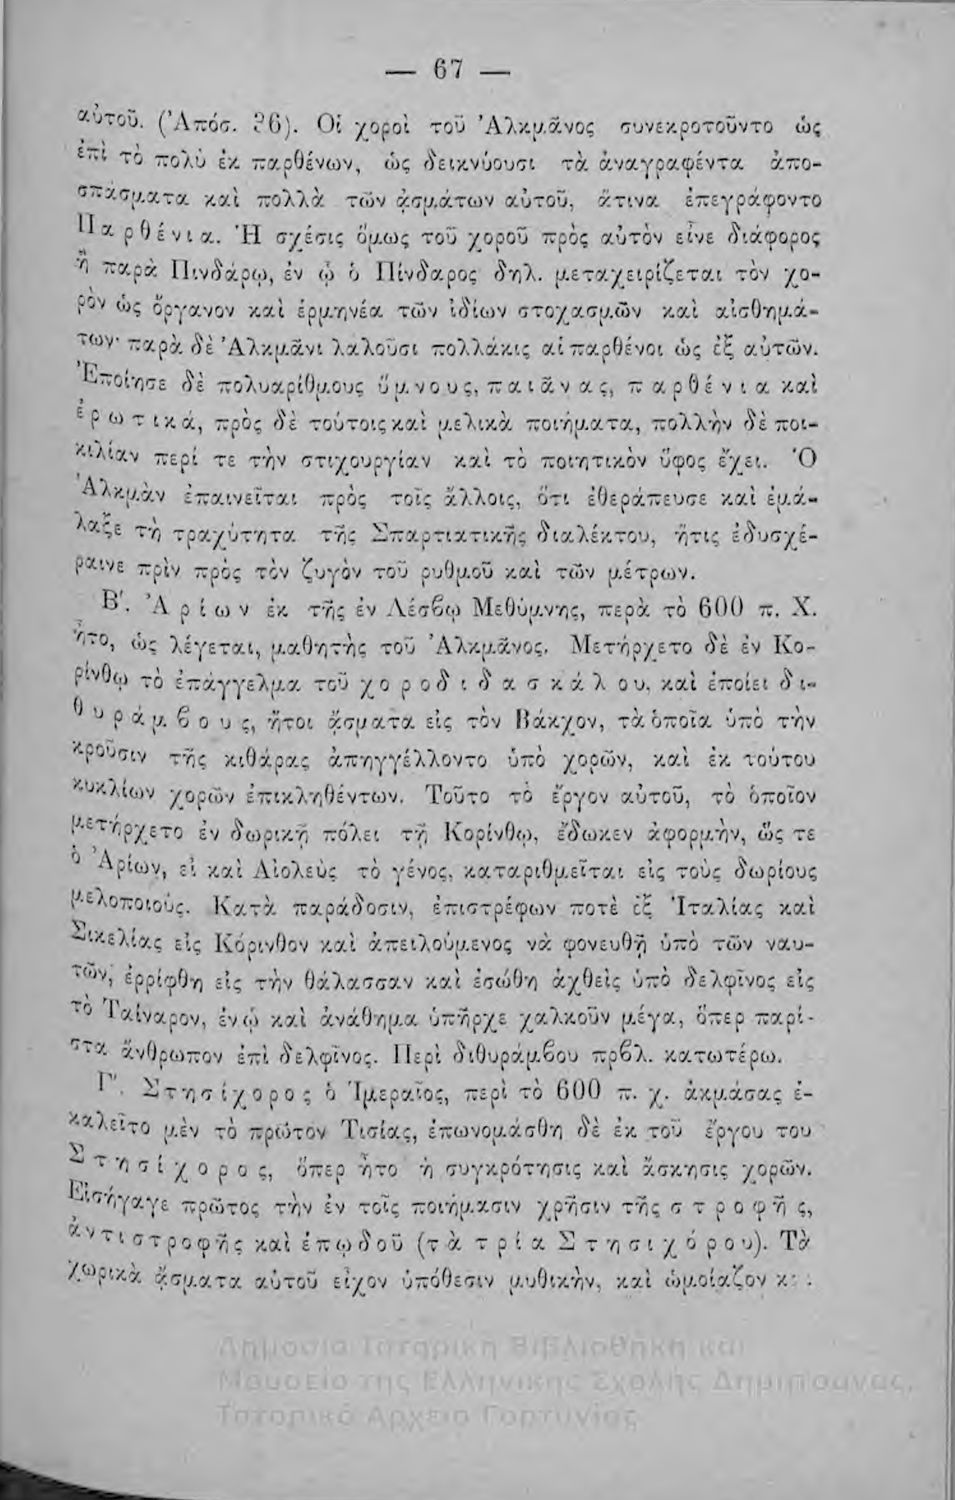 — 67 —
αὐτοῦ. (Ἀπόσ. 26). Οἱ χοροὶ τοῦ Ἀλκμᾶνος συνεκροτοῦντο ὡς
ἐπὶ τὸ πολὺ ἐκ παρθένων, ὡς δεικνύουσι τὰ ἀναγραφέντα ἀπο-
σπάσματα καὶ πολλὰ τῶν ᾀσμάτων αὐτοῦ, ἅτινα ἐπεγράφοντο
Παρθένια. Ἡ σχέσις ὅμως τοῦ χοροῦ πρὸς αὐτὸν εἶνε διάφορος
ἢ παρὰ Πινδάρῳ, ἐν ᾧ ὁ Πίνδαρος δηλ. μεταχειρίζεται τὸν χο-
ρὸν ὡς ὄργανον καὶ ἑρμηνέα τῶν ἰδίων στοχασμῶν καὶ αἰσθημά-
των· παρὰ δὲ Ἀλκμᾶνι λαλοῦσι πολλάκις αἱ παρθένοι ὡς ἐξ αὑτῶν.
Ἐποίησε δὲ πολυαρίθμους ὕμνους, παιᾶνας, παρθένια καὶ
ἐρωτικά, πρὸς δὲ τούτοις καὶ μελικὰ ποιήματα, πολλὴν δὲ ποι-
κιλίαν περί τε τὴν στιχουργίαν καὶ τὸ ποιητικὸν ὕφος ἔχει. Ὁ
Ἀλκμὰν ἐπαινεῖται πρὸς τοῖς ἄλλοις, ὅτι ἐθεράπευσε καὶ ἐμά-
λαξε τὴ τραχύτητα τῆς Σπαρτιατικῆς διαλέκτου, ἥτις ἐδυσχέ-
ραινε πρὶν πρὸς τὸν ζυγὸν τοῦ ρυθμοῦ καὶ τῶν μέτρων.
Β΄. Ἀρίων ἐκ τῆς ἐν Λέσβῳ Μεθύμνης, περὰ τὸ 600 π. Χ.
ἦτο, ὡς λέγεται, μαθητὴς τοῦ Ἀλκμᾶνος. Μετήρχετο δὲ ἐν Κο-
ρίνθῳ τὸ ἐπάγγελμα τοῦ χοροδιδασκάλου, καὶ ἐποίει δι-
θυράμβους, ἤτοι ᾄσματα εἰς τὸν Βάκχον, τὰ ὁποῖα ὑπὸ τὴν
κροῦσιν τῆς κιθάρας ἀπηγγέλλοντο ὑπὸ χορῶν, καὶ ἐκ τούτου
κυκλίων χορῶν ἐπικληθέντων. Τοῦτο τὸ ἔργον αὐτοῦ, τὸ ὁποῖον
μετήρχετο ἐν δωρικῇ πόλει τῇ Κορίνθῳ, ἔδωκεν ἀφορμὴν, ὥς τε
ὁ Ἀρίων, εἰ καὶ Αἰολεὺς τὸ γένος, καταριθμεῖται εἰς τοὺς δωρίους
μελοποιούς. Κατὰ παράδοσιν, ἐπιστρέφων ποτὲ ἐξ Ἰταλίας καὶ
Σικελίας εἰς Κόρινθον καὶ ἀπειλούμενος νὰ φονευθῇ ὑπὸ τῶν ναυ-
τῶν, ἐρρίφθη εἰς τὴν θάλασσαν καὶ ἐσώθη ἀχθεὶς ὑπὸ δελφῖνος εἰς
τὸ Ταίναρον, ἐν ᾧ καὶ ἀνάθημα ὑπῆρχε χαλκοῦν μέγα, ὅπερ παρί-
στα ἄνθρωπον ἐπὶ δελφῖνος. Περὶ διθυράμβου πρβλ. κατωτέρω.
Γ΄. Στησίχορος ὁ Ἱμεραῖος, περὶ τὸ 600 π. χ. ἀκμάσας ἐ-
καλεῖτο μὲν τὸ πρῶτον Τισίας, ἐπωνομάσθη δὲ ἐκ τοῦ ἔργου του
Στησίχορος, ὅπερ ἦτο ἡ συγκρότησις καὶ ἄσκησις χορῶν.
Εἰσήγαγε πρῶτος τὴν ἐν τοῖς ποιήμασιν χρῆσιν τῆς στροφῆς,
ἀντιστροφῆς καὶ ἐπῳδοῦ (τὰ τρία Στησιχόρου). Τὰ
χωρικὰ ᾄσματα αὐτοῦ εἶχον ὑπόθεσιν μυθικὴν, καὶ ὡμοίαζον
Δημόσια Ιστορική Βιβλιοθήκη και
Μουσείο της Ελληνικής Σχολής Δημητσάνας,
Ιστορικό Αρχείο Γορτυνίας